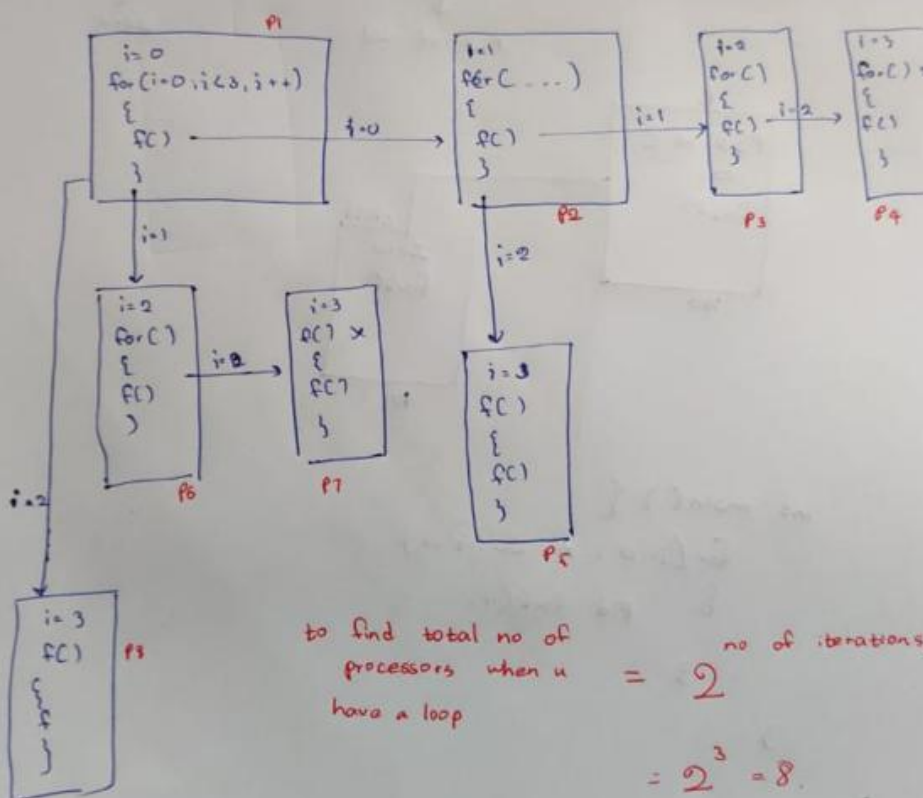 P1
i=0
for(i=0,i<3,i++)
{
f()
}
i=0
i=1
for(....)
{
f()
}
P2
i=1
i=2
for()
{
f()
}
P3
i=2
i=3
for()
{
f()
}
P4
i=1
i=2
for()
{
f()
}
P6
i=3
f() x
{
f()
}
P7
i=2
i=3
f()
{
f()
}
P5
i=2
i=3
f()
P8
to find total no of
processors when u
have a loop
= 2 no of iterations
= 2³ = 8.